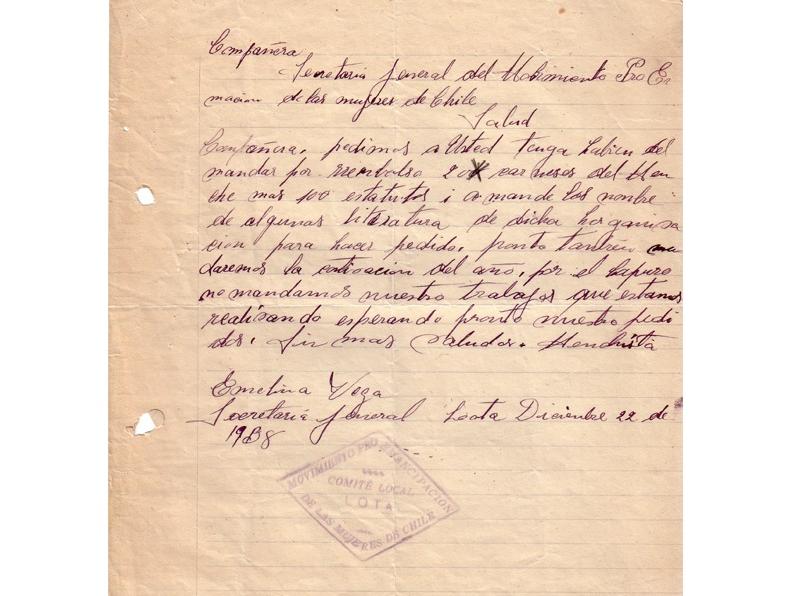 Compañera
Secretaria jeneral del Mobimiento Pro
macion de las mujeres de Chile
Salud
Compañera, pedimos a Usted tenga habien del
mandar por rrembolso 20 carneses del Men
che mas 100 estatutos i a mande los nonbre
de algunas literatura de dicha horganisa
cion para hacer pedido, pronto tanvien man
daremos la cotisacion del año, por el hapuro
no mandamos nuestro trabajos que estamos
realisando esperando pronto nuestro pedi
dos. Sin mas saludos. Menchista
Emelina Vega
Secretaria jeneral Lota Diciembre 22 de
1938
MOVIMIENTO PRO EMANCIPACION
COMITÉ LOCAL
LOTA
DE LAS MUJERES DE CHILE